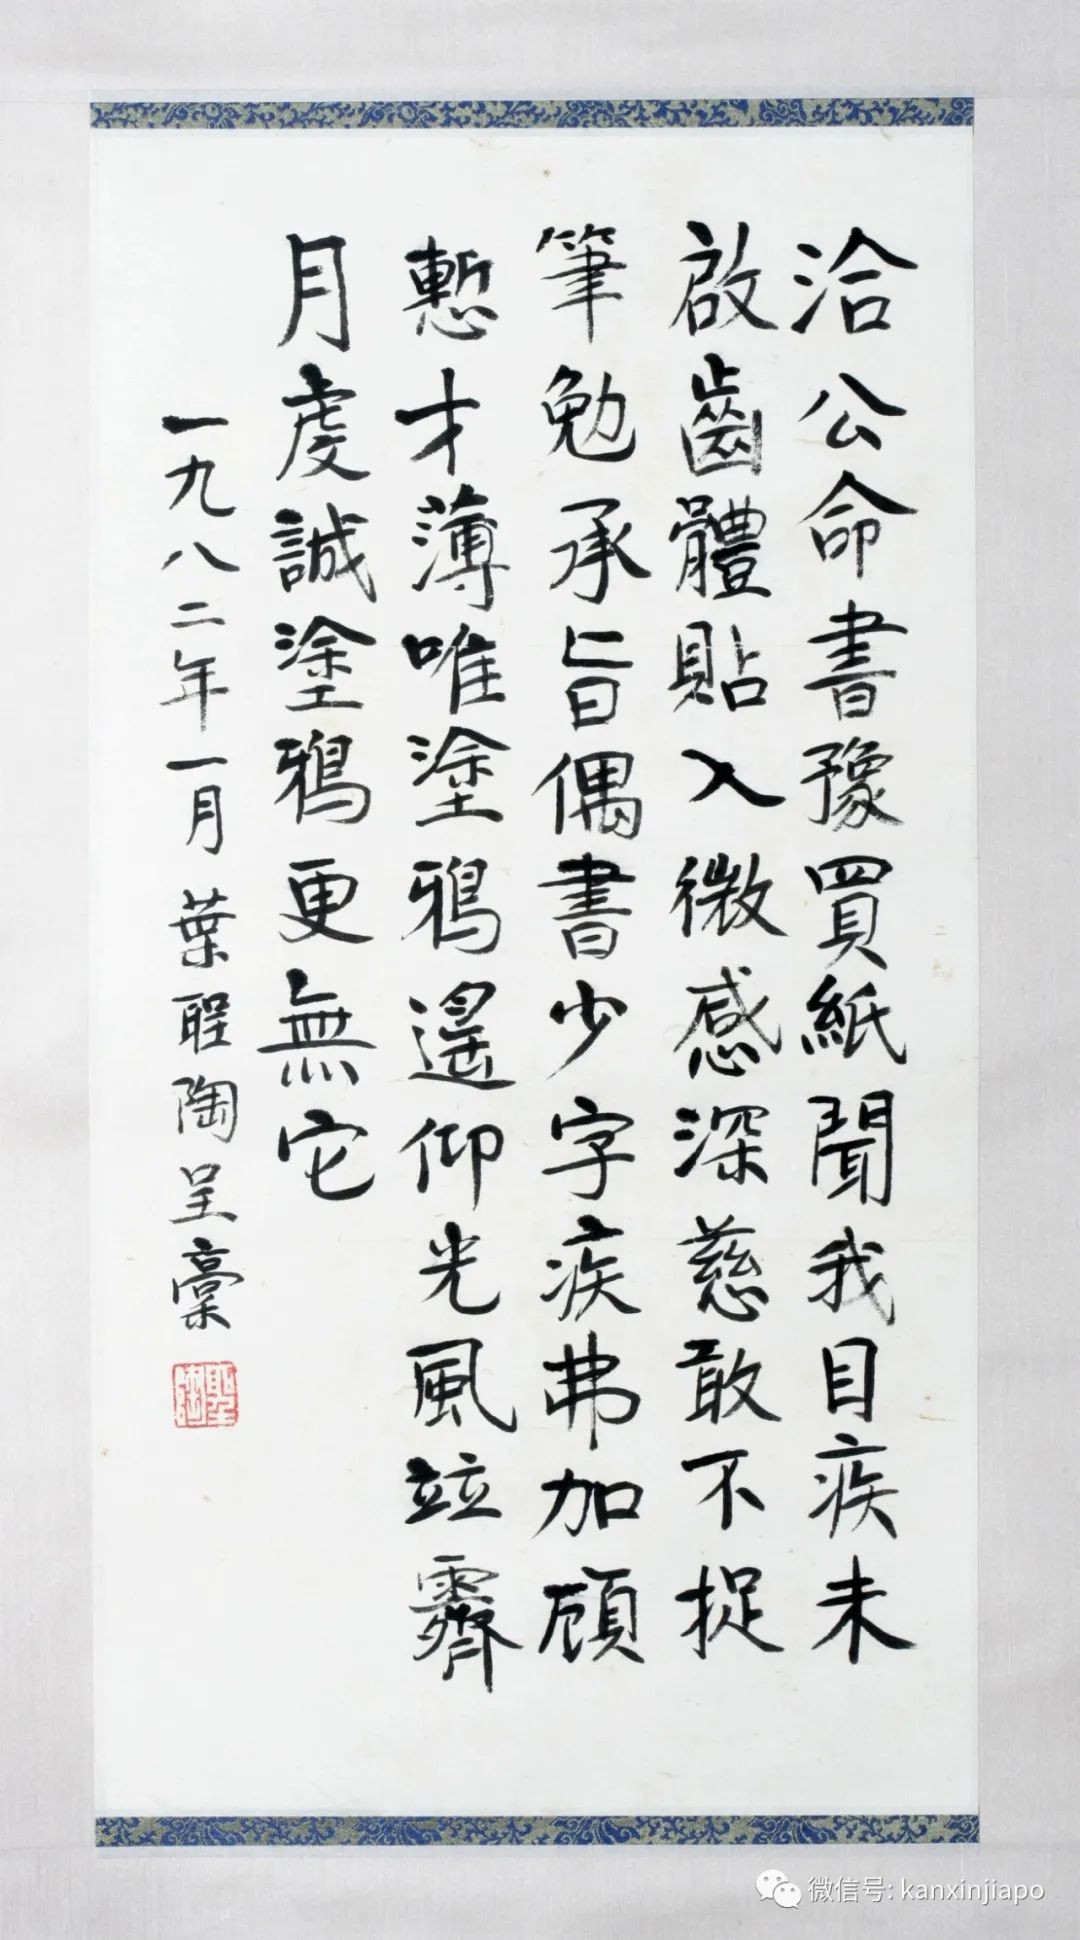 洽公命書豫買紙聞我目疾未
啟齒體貼入微感深慈敢不捉
筆勉承旨偶書少字疾弗加顧
慙才薄唯塗鴉遥仰光風竝霽
月虔誠塗鴉更無它
一九八二年一月葉聖陶呈稾
聖陶
微信号: kanxinjiapo